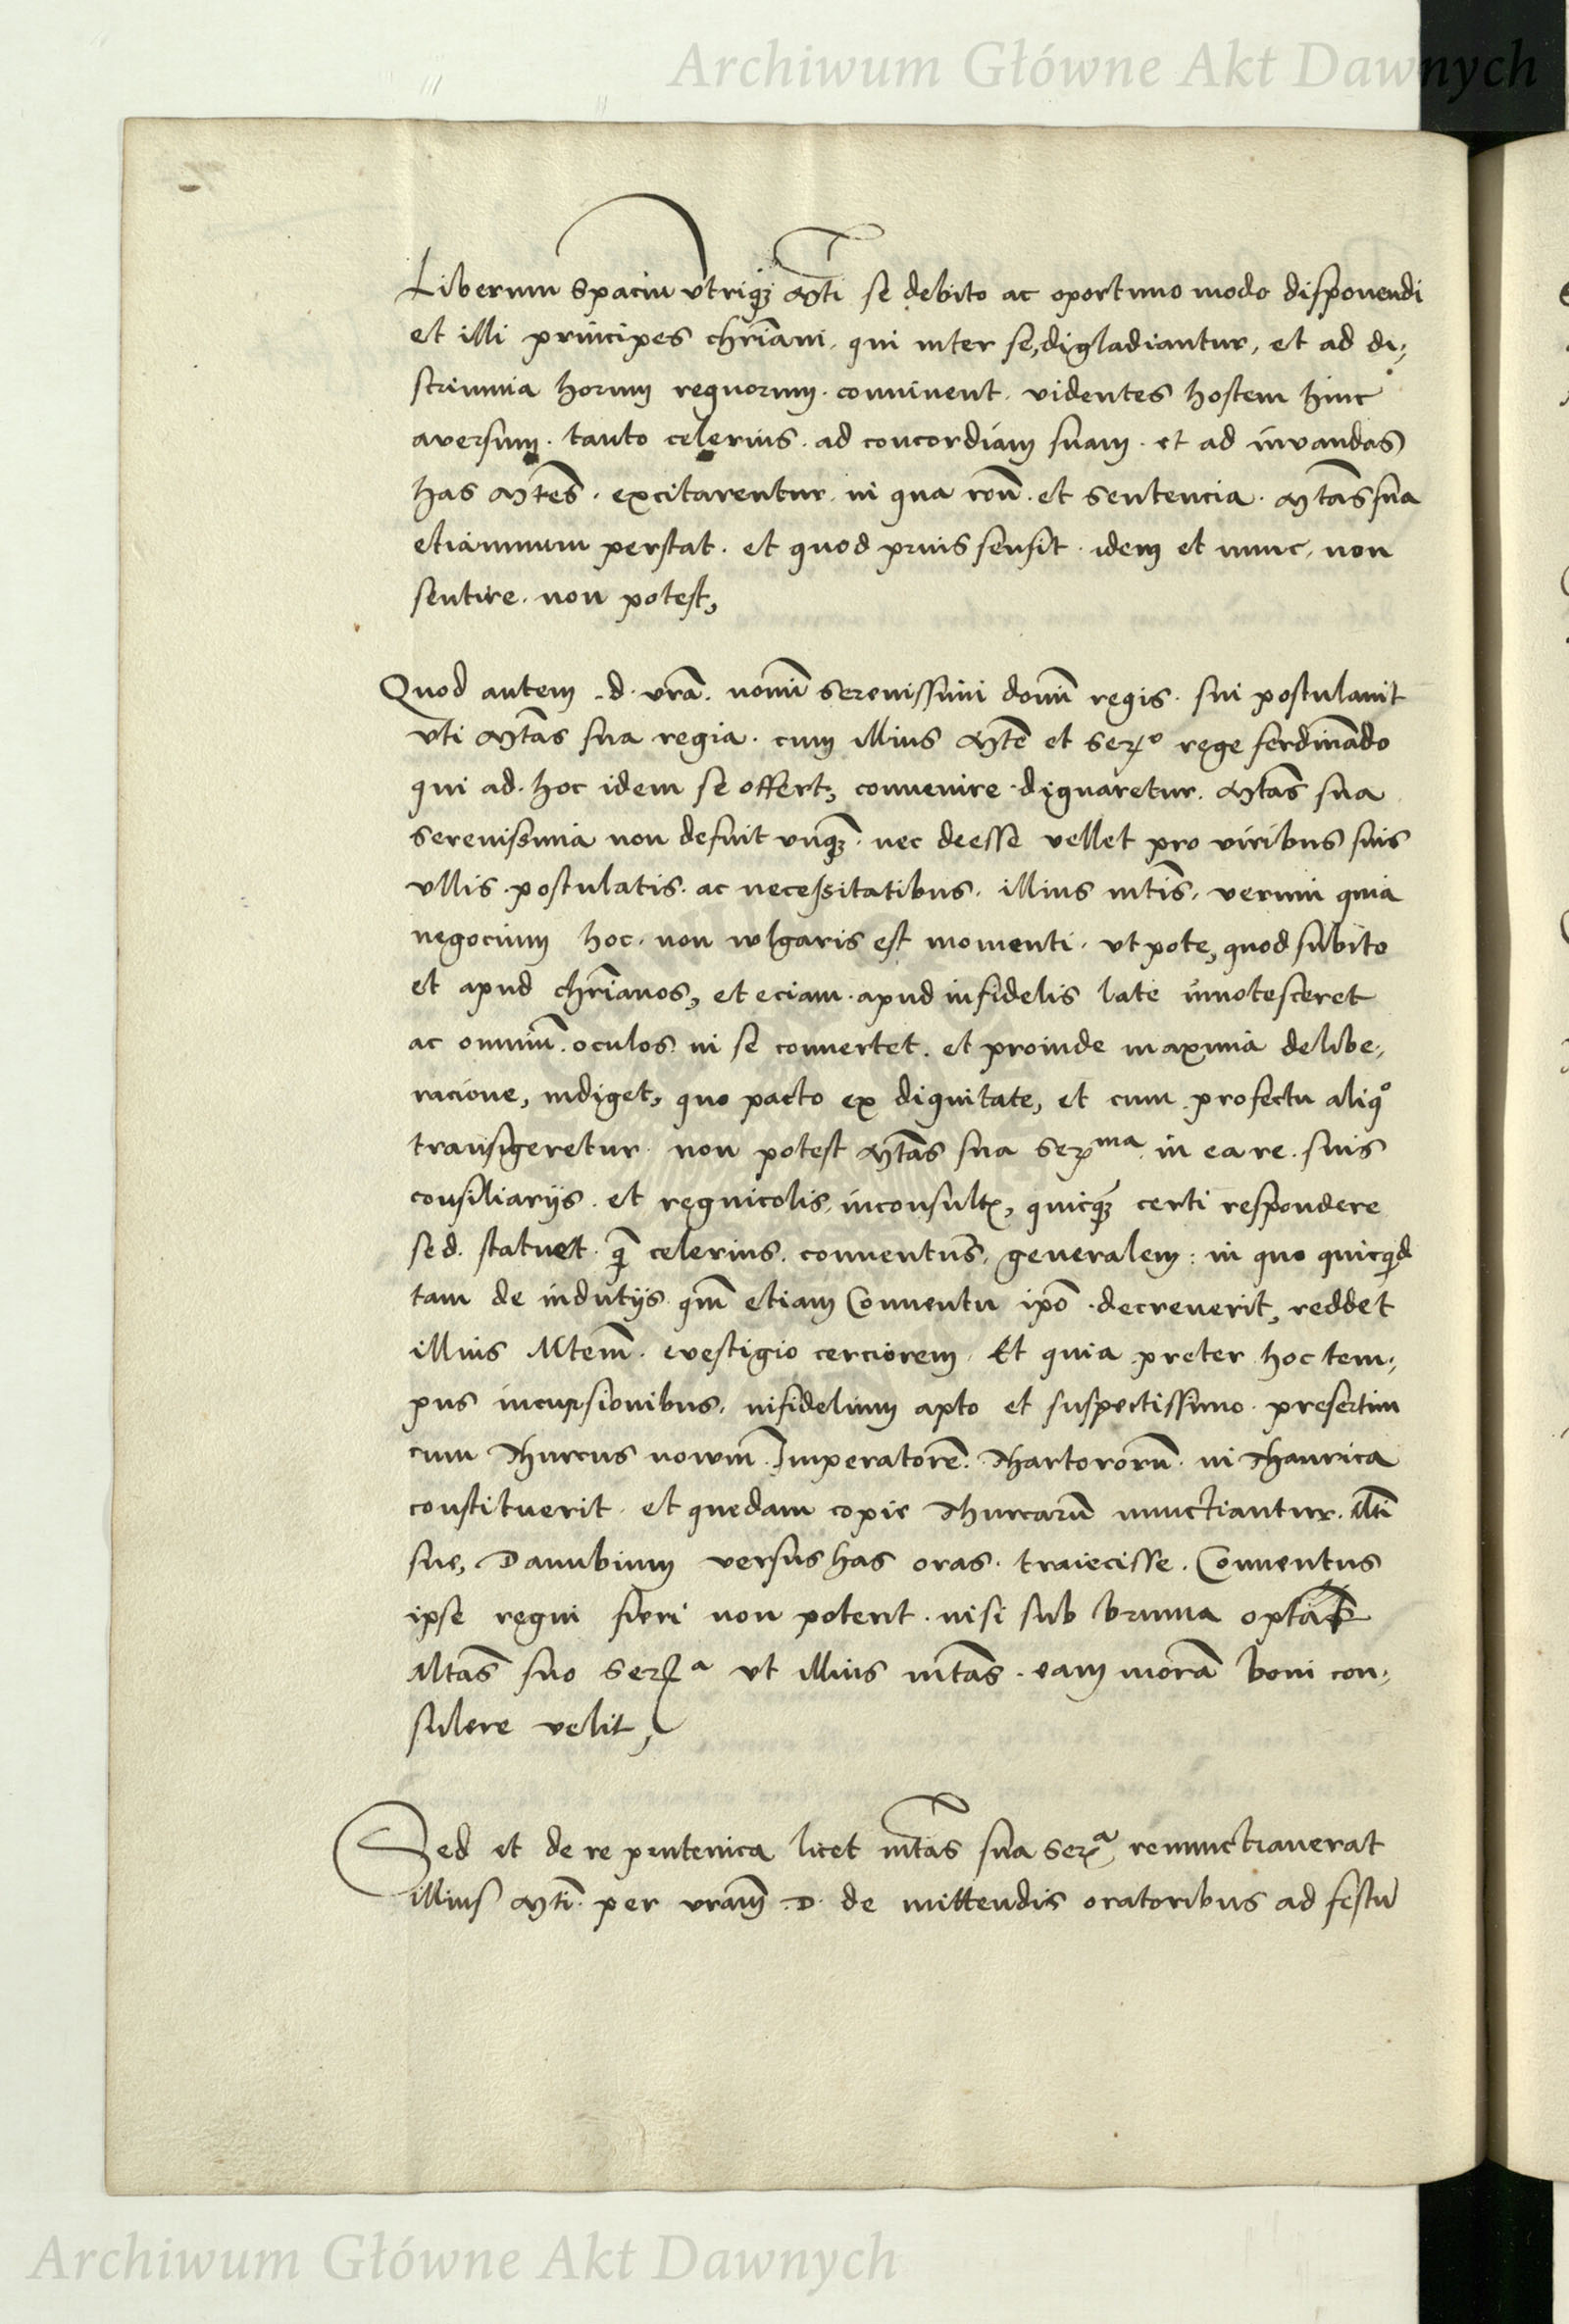 Archiwum Główne Akt Dawnych
Liberum spaciũ vtriqʒ Mti se debito ac oportuno modo disponendi
et illi principes chr̃iani, qui inter se, digladiantur, et ad di,
scrimina horum regnorum. conniuent. videntes hostem hinc
aversum. tanto celerius. ad concordiam suam. et ad iuvandas
has Mtes. excitarentur. in qua roñ. et sentencia. Mtas sua
etiamnum perstat. et quod prius sensit. idem et nunc, non
sentire. non potest,
Quod autem .d. vrã. nomĩ serenissimi domĩ regis. sui postulauit
vti Mtas sua regia. cum illius Mte et serº rege ferdinãdo
qui ad. hoc idem se offert, convenire dignaretur. Mtas sua
serenissima non defuit vnqʒ. nec deesse vellet pro viribus suis
vllis. postulatis. ac necessitatibus. illius mtis. verum quia
negocium hoc. non wlgaris est momenti. vt pote, quod subito
et apud chr̃ianos, et eciam. apud infidelis late innotesceret
ac omniũ. oculos. in se conuertet. et proinde maxima delibe,
racione, indiget, quo pacto ex dignitate, et cum profectu aliqº
transigeretur. non potest Mtas sua serma. in ea re. suis
consiliarijs. et regnicolis, inconsult, quicqʒ certi respondere
sed. statuet. q̃ celerius. conuentũs, generalem: in quo quicqd
tam de indutijs. qm̃ etiam Conuentu ipõ. decreverit, reddet
illius Mtem̃. evestigio cerciorem. Et quia preter hoc tem,
pus incursionibus, infidelium apto et suspectissimo. presertim
cum Thurcus nowm̃. Imperatorẽ. Thartororũ. in Thaurica
constituerit. et quedam copie Thurcarũ nunctiantur. Mti
sue, Danubium versus has oras. traiecisse. Conuentus
ipse regni fieri non poterit. nisi sub bruma optat
Mtas suo serᵃ vt illius mtas. eam morã boni con,
sulere velit,
Sed et de re prutenica licet mtas sua serᵃ renunctiauerat
illius Mti. per vram̃ .D. de mittendis oratoribus ad festũ
Archiwum Główne Akt Dawnych